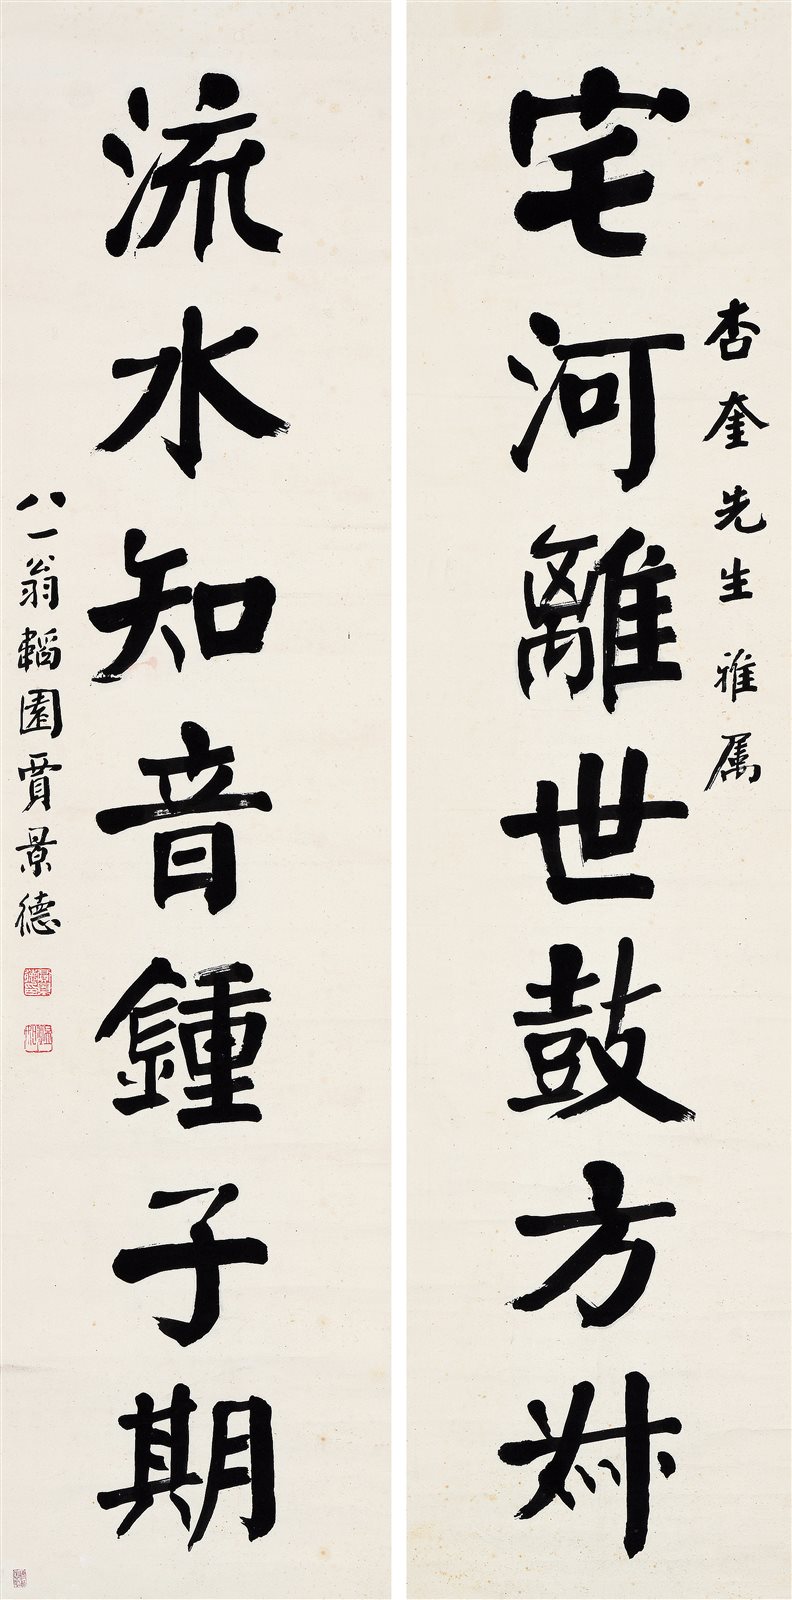 杏奎先生雅属
宅河離世鼓方叔
流水知音鍾子期
八一翁韜園賈景德